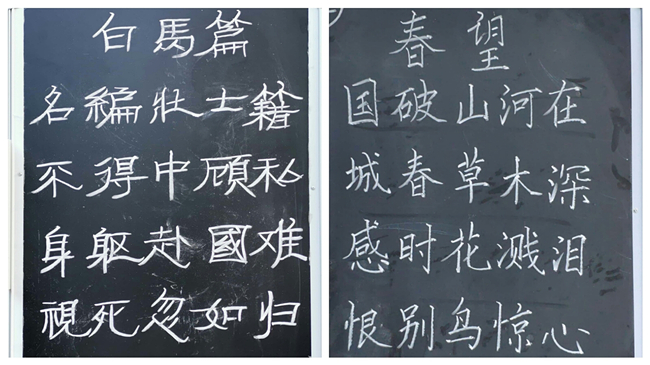 白馬篇
名編壮士籍
不得中顧私
身躯赴國难
視死忽如归
春望
国破山河在
城春草木深
感时花溅泪
恨别鸟惊心